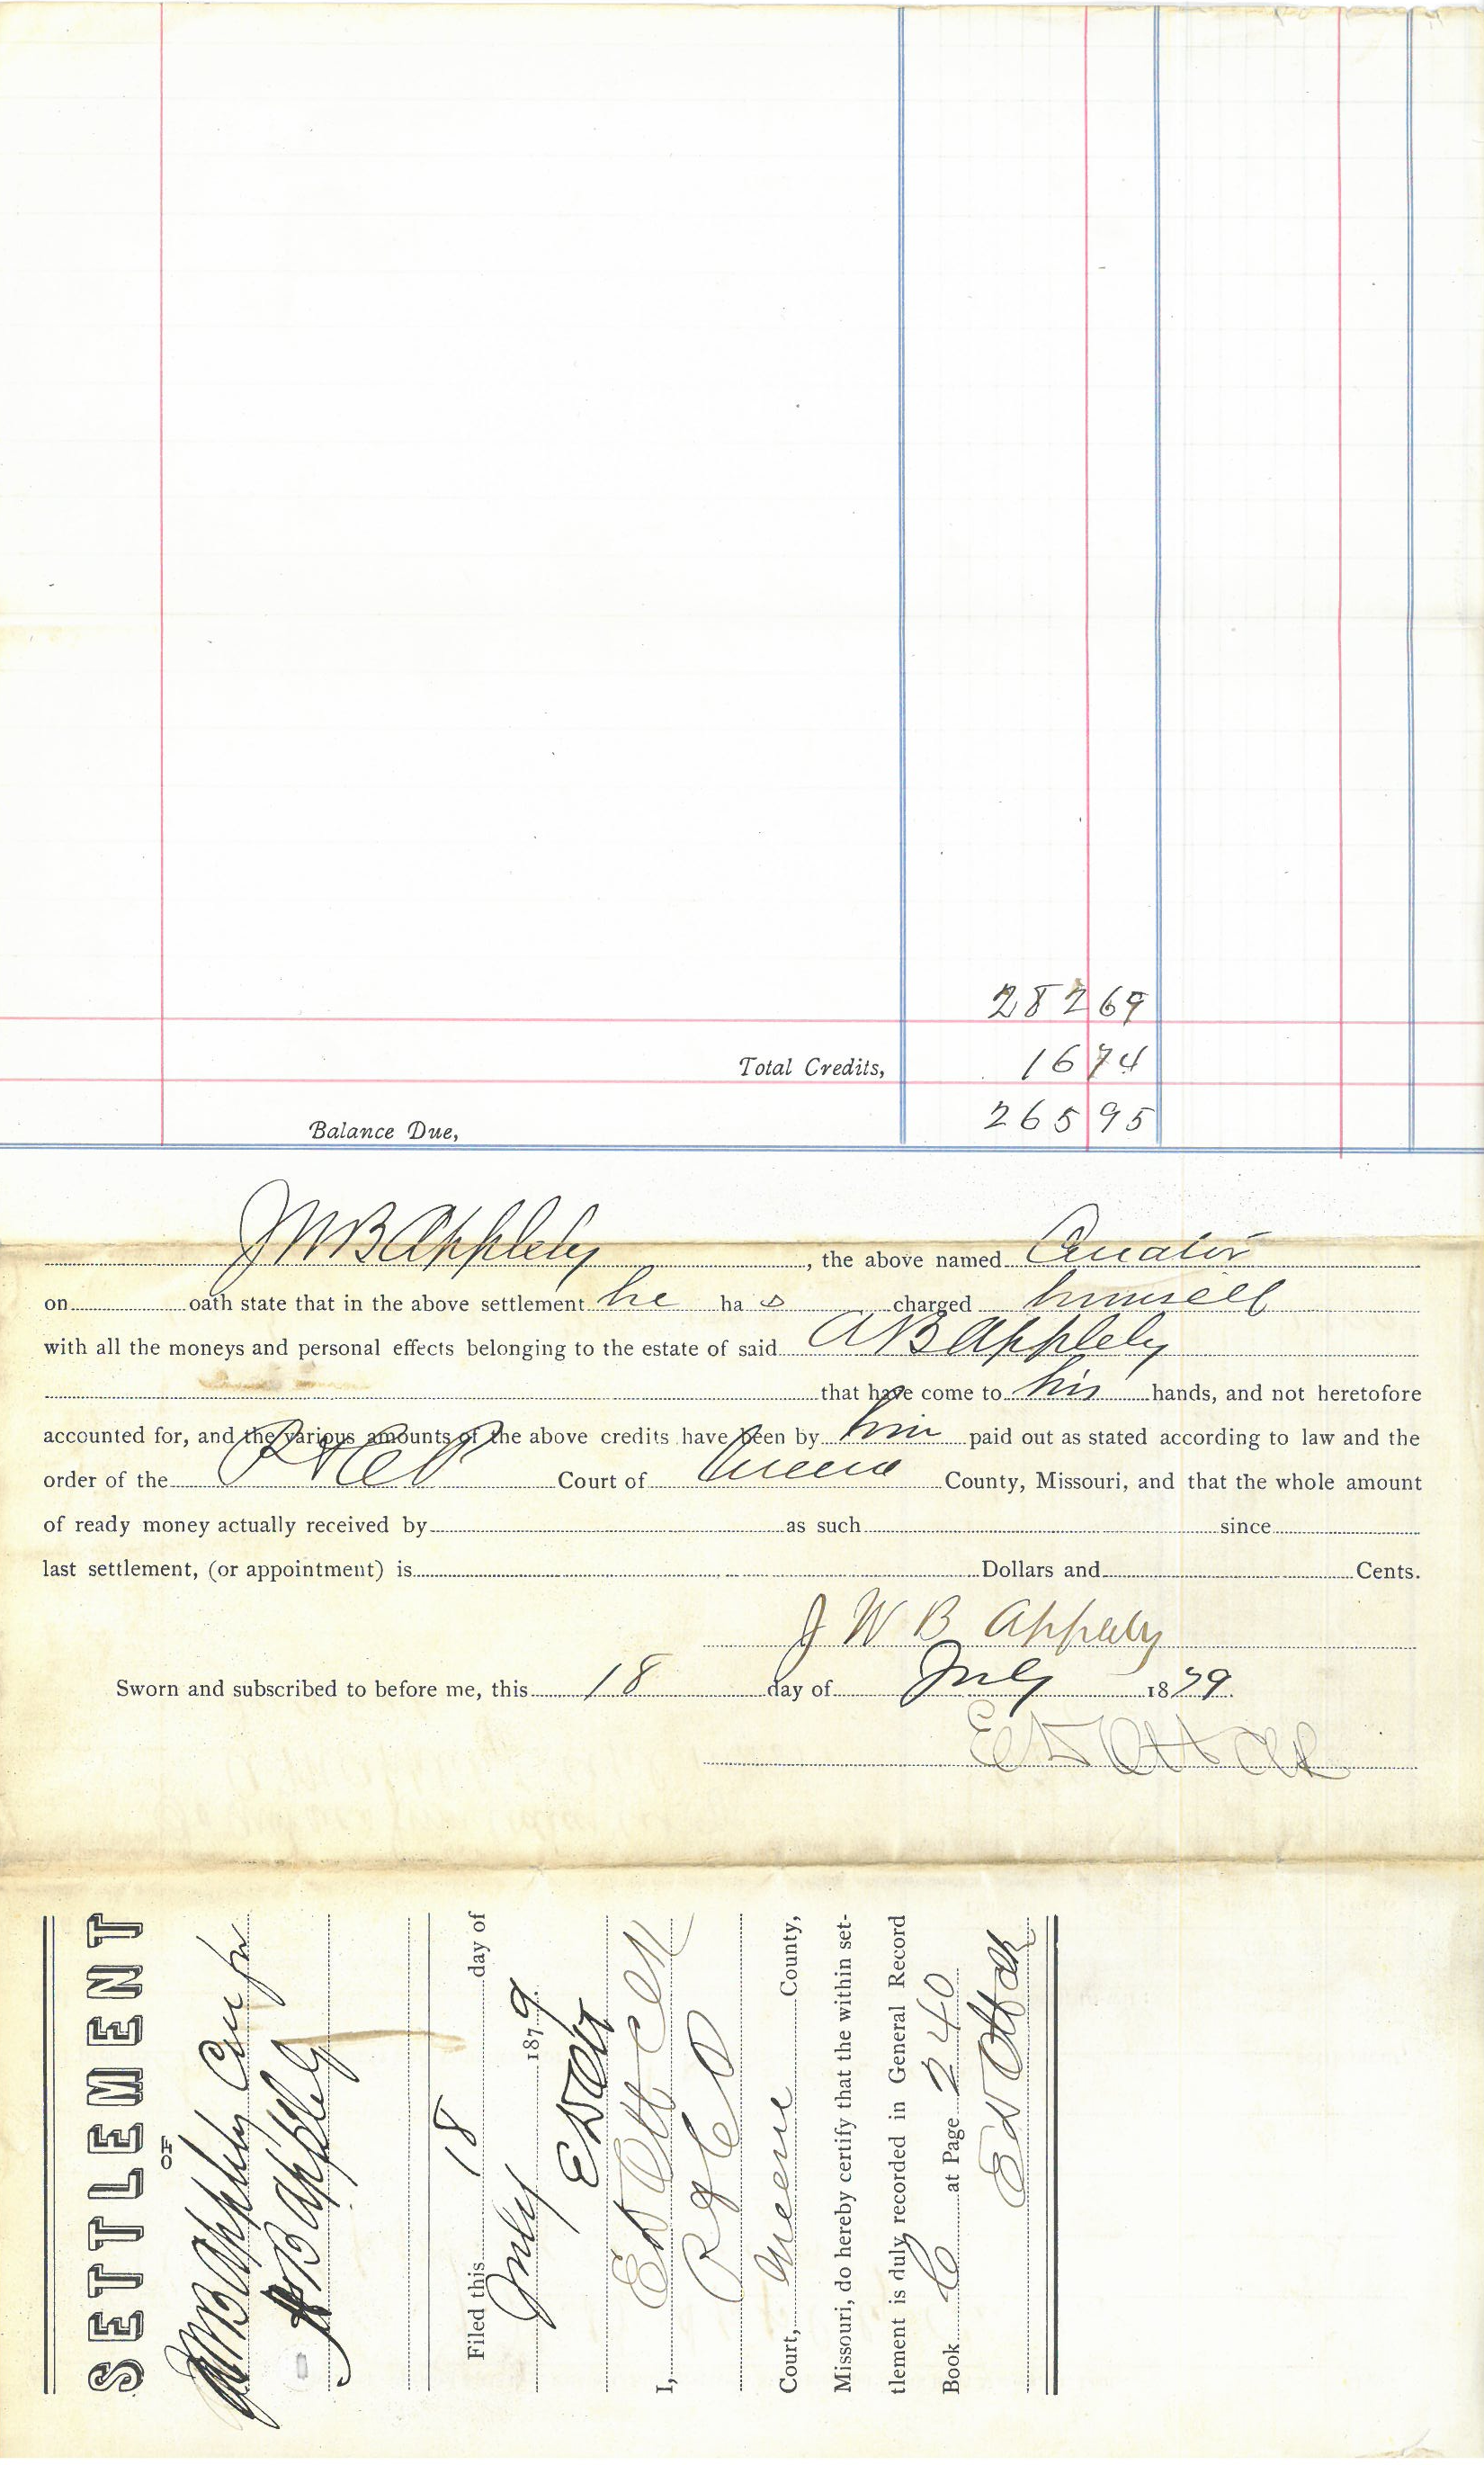 282 69
Total Credits, 16 74
Balance Due, 265 95
J W B Appleby, the above named Curator
on oath state that in the above settlement he has charged himself
with all the moneys and personal effects belonging to the estate of said A B Appleby
that have come to his hands, and not heretofore
accounted for, and the various amounts of the above credits have been by him paid out as stated according to law and the
order of the Court of Greene County, Missouri, and that the whole amount
of ready money actually received by as such since
last settlement, (or appointment) is Dollars and Cents.
J W B Appleby
Sworn and subscribed to before me, this 18 day of July 1879.
E D Ott Clk
SETTLEMENT
OF
J W B Appleby Cur for
B Appleby
Filed this 18 day of
July 1879.
E D Ott
I, E D Ott Clk
Court, Greene County,
Missouri, do hereby certify that the within set-
tlement is duly recorded in General Record
Book at Page 240
E D Ott Clk